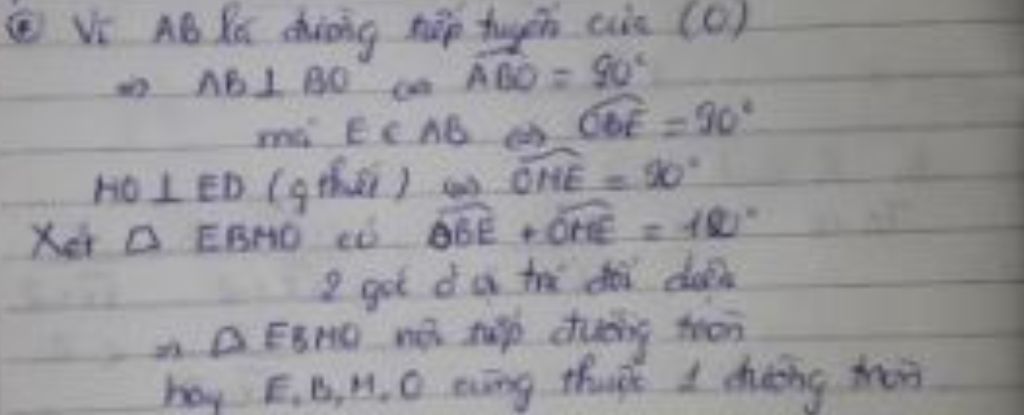 ⓔ Vì AB là đường tiếp tuyến của (O)
=> AB ⊥ BO <=> ABO = 90°
mà E ∈ AB <=> OBE = 90°
MO ⊥ ED (gthiết) <=> OME = 90°
Xét △ EBMO có OBE + OME = 180°
2 góc ở vị trí đối diện
=> △ EBMO nội tiếp đường tròn
hay E, B, M, O cùng thuộc 1 đường tròn